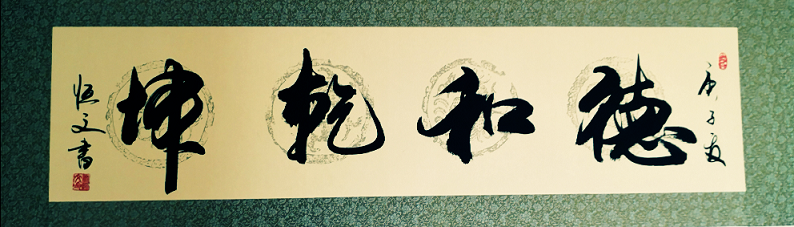 庚子夏
德和乾坤
恒文書